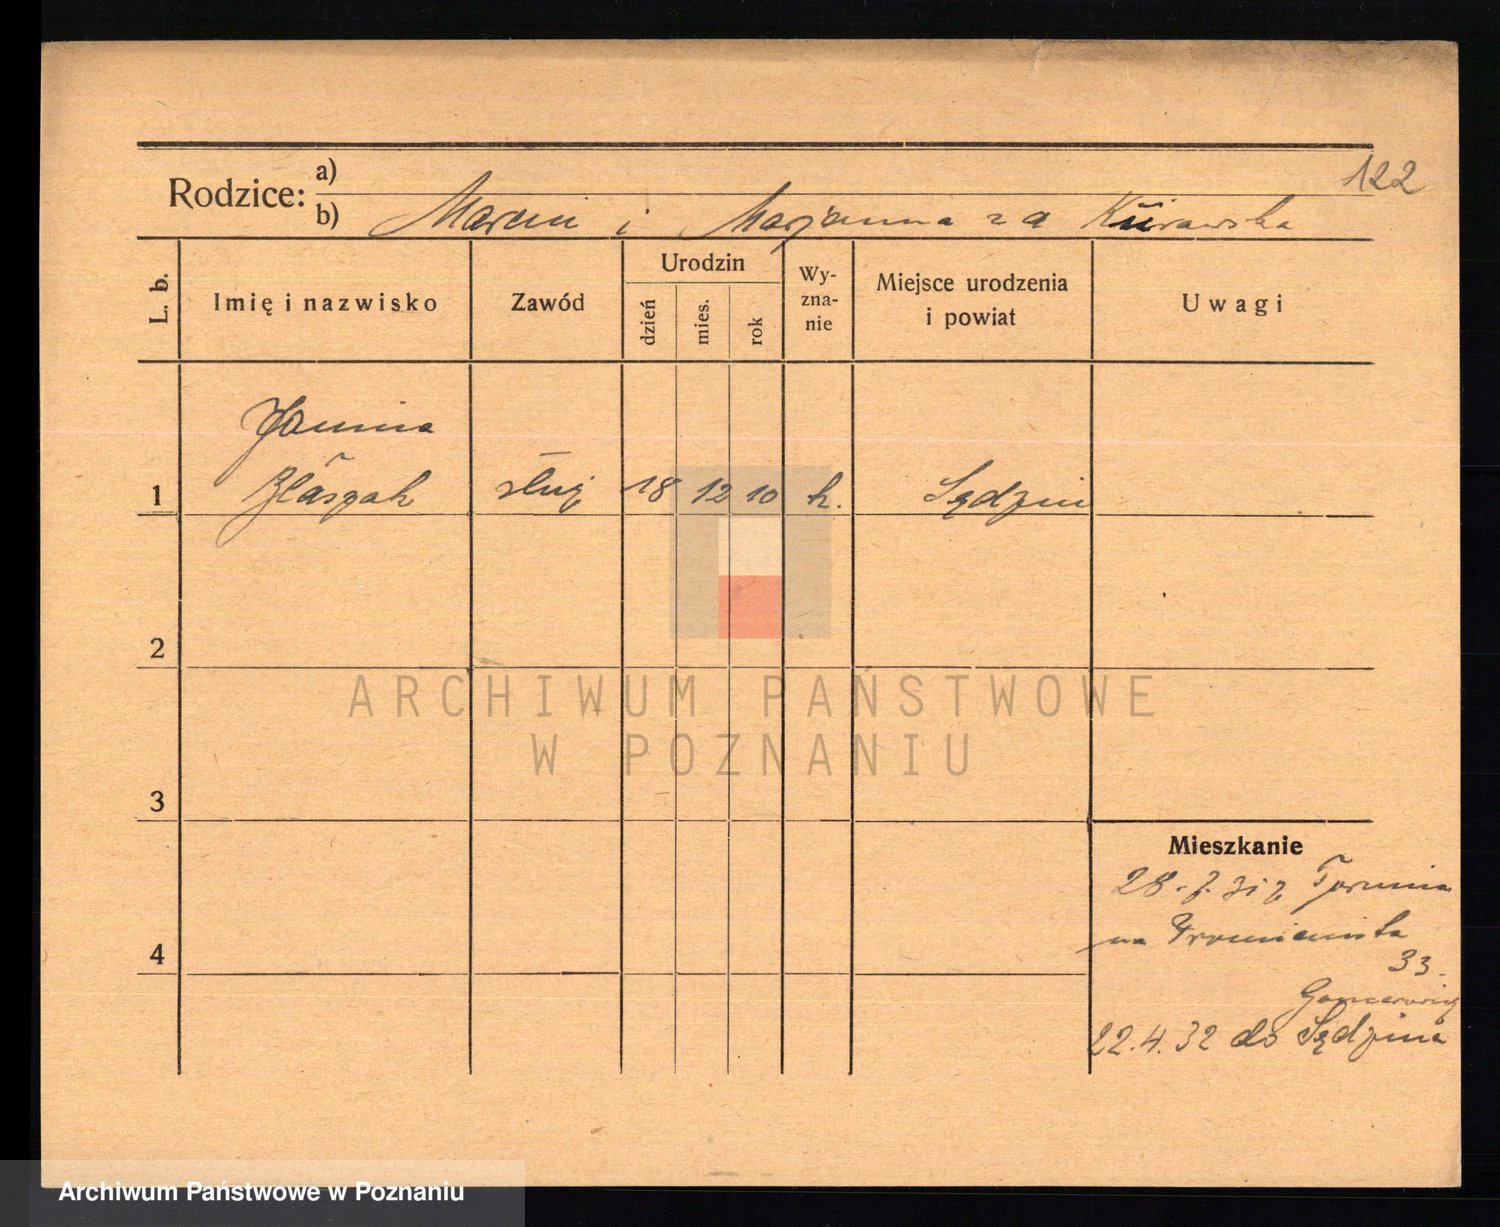 122
Rodzice: a)
b) Marcin i Marjanna z d Kurawska
L. b.
Imię i nazwisko
Zawód
Urodzin
dzień
mies.
rok
Wy-
zna-
nie
Miejsce urodzenia
i powiat
Uwagi
Janina
1 Błaszak służ 18 12 10 k. Sędzin
2
3
4
Mieszkanie
28. 7. 31 z Torunia
na
33.
22.4.32 do Sędzina
ARCHIWUM PAŃSTWOWE
W POZNANIU
Archiwum Państwowe w Poznaniu